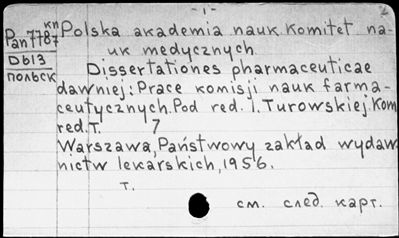 - 1 - 2
кп
Pan7787 Polska akademia nauk Komitet na-
uk medycznych
Dы3
польск
Dissertationes pharmaceuticae
dawniej: Prace komisji nauk farma-
ceutycznych. Pod red. I. Turowskiej Kom
red. T. 7
Warszawa, Państwowy zakład wydaw
nictw lekarskich, 1956.
т.
см. след. карт.